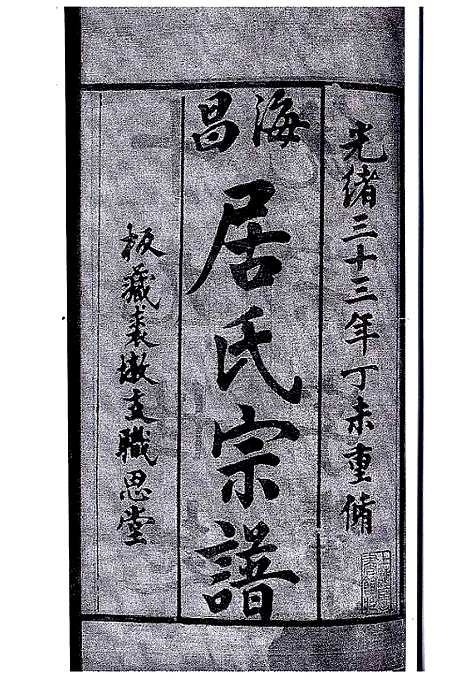 光緒三十三年丁未重脩
海昌
居氏宗譜
板藏袁墩支職思堂